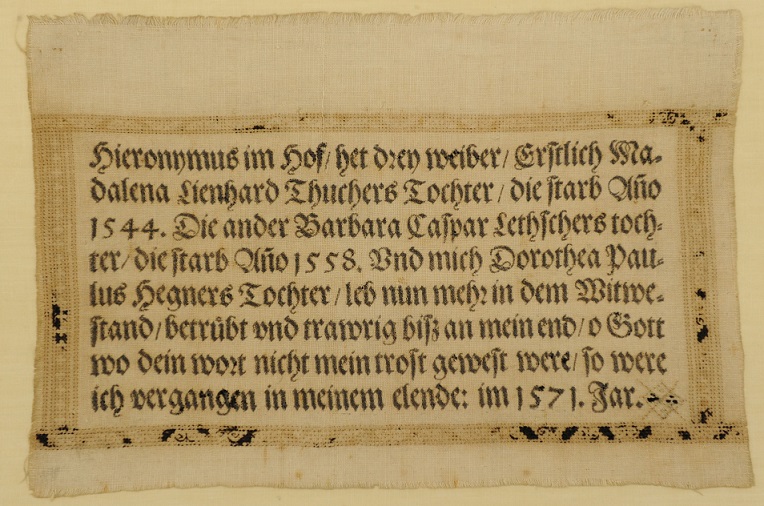 Hieronymus im Hof/ het drey weiber/ Erstlich Ma-
dalena Lienhard Thuchers Tochter/ die starb Año
1544. Die ander Barbara Caspar Lethschers toch-
ter/ die starb Año 1558. Vnd mich Dorothea Pau-
lus Hegners Tochter/ leb nun mehr in dem Witwe-
stand/ betrübt vnd trawrig bisz an mein end/ o Gott
wo dein wort nicht mein trost gewest were/ so were
ich vergangen in meinem elende: im 1571. Jar.